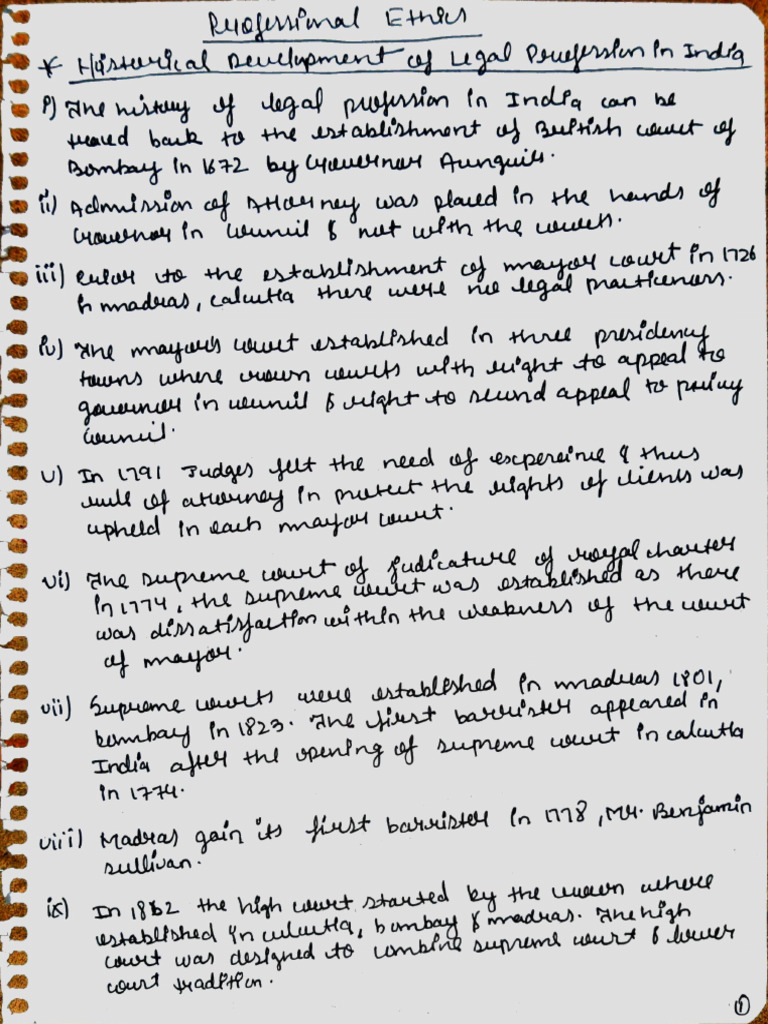 Professional Ethics
* Historical Development of Legal Profession in India
i) The history of legal profession in India can be
traced back to the establishment of British court of
Bombay in 1672 by Governor Aunguir.
ii) Admission of Attorney was placed in the hands of
Governor in Council & not with the courts.
iii) Prior to the establishment of mayor court in 1726
in madras, calcutta there were no legal practicenors.
iv) The mayor's court established in three presidency
towns where crown courts with right to appeal to
governor in council & right to second appeal to privy
council.
v) In 1791 Judges felt the need of experience & thus
rule of attorney in protect the rights of clients was
upheld in each mayor court.
vi) The supreme court of judicature of royal charter
in 1774, the supreme court was established as there
was dissatisfaction within the weakness of the court
of mayor.
vii) Supreme courts were established in madras 1801,
bombay in 1823. The first barrister appeared in
India after the opening of supreme court in calcutta
in 1774.
viii) Madras gain its first barrister in 1778, Mr. Benjamin
sullivan.
ix) In 1862 the high court started by the crown where
established in culcutta, bombay & madras. The high
court was designed to combine supreme court & lower
court tradition.
1